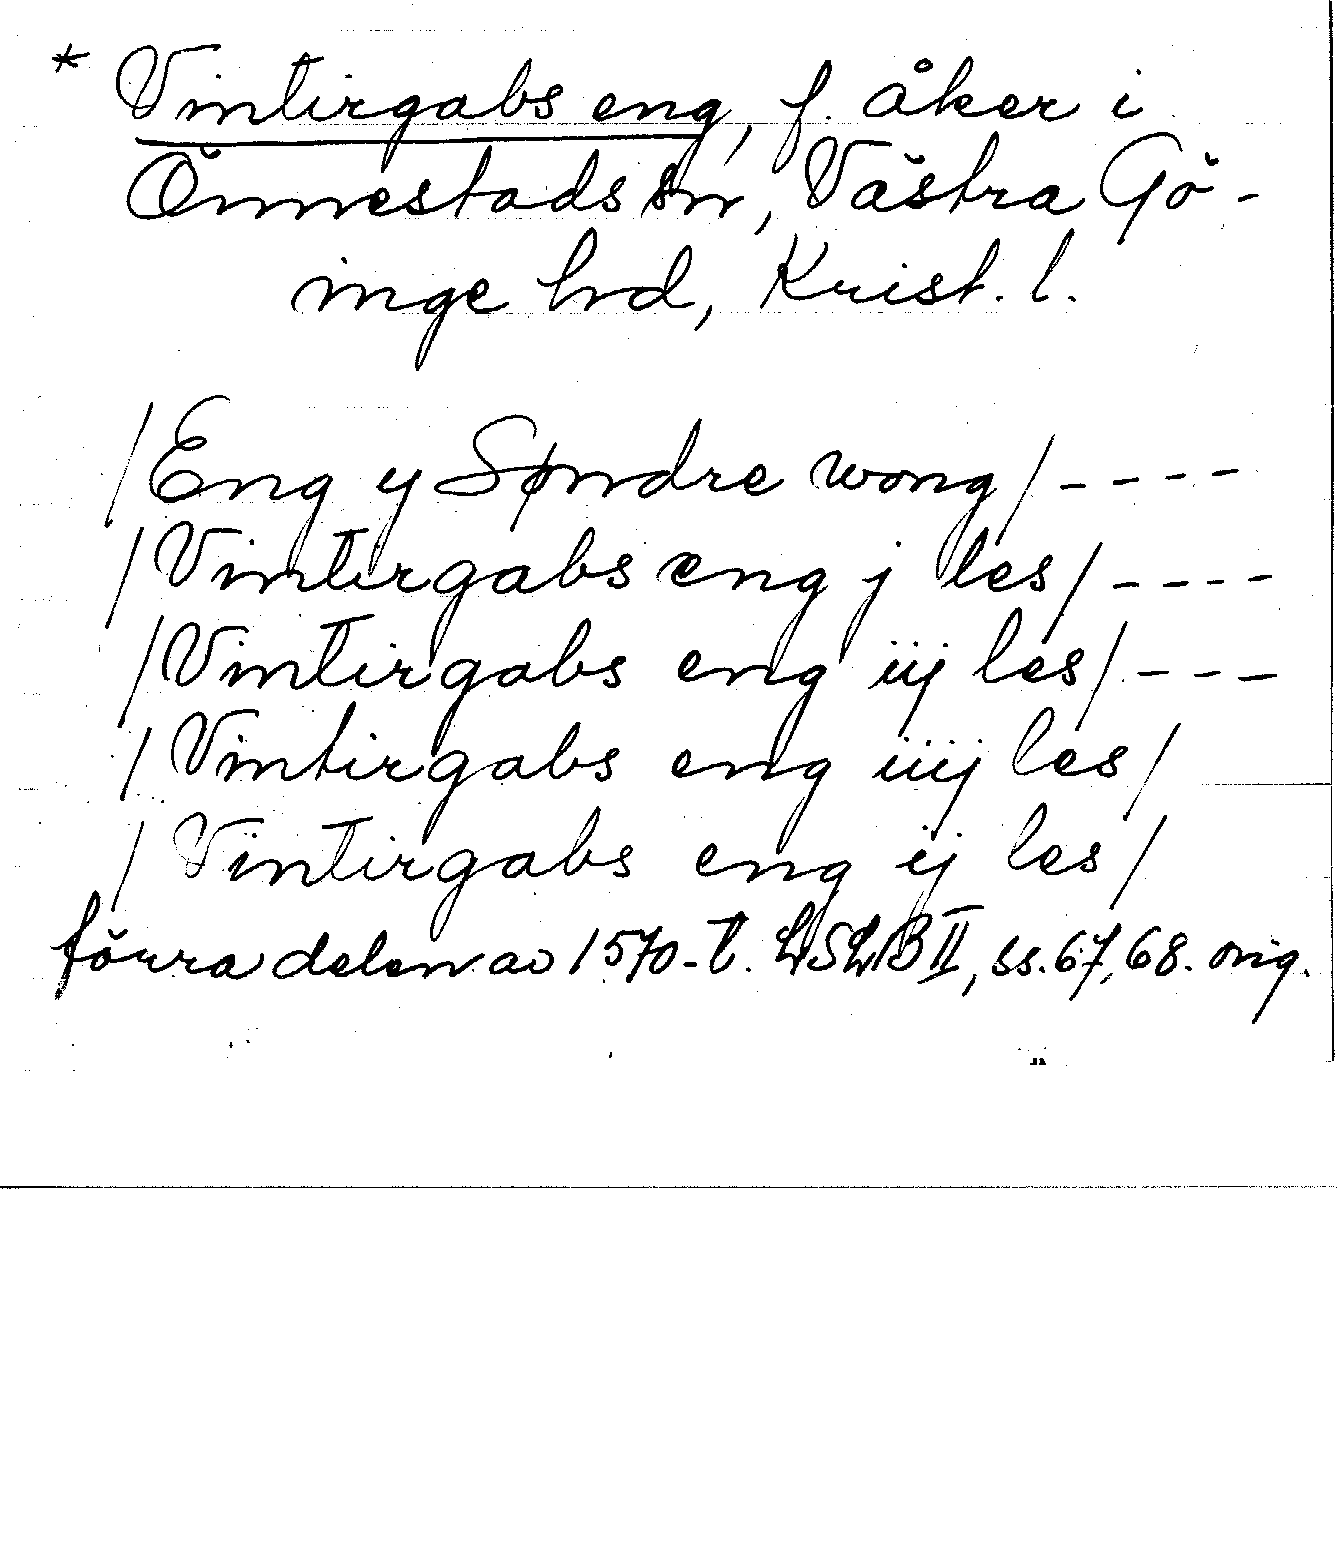 * Vintirgabs eng, f. åker i
Önnestads sn, Västra Gö-
inge hrd, Krist. l.
/Eng y Søndre wong/ ----
/Vintirgabs eng j les/ ----
/Vintirgabs eng iij les/ ---
/Vintirgabs eng iiij les/
/Vintirgabs eng ij les/
förra delen av 1570-t. LSLB II, ss. 67, 68. orig.